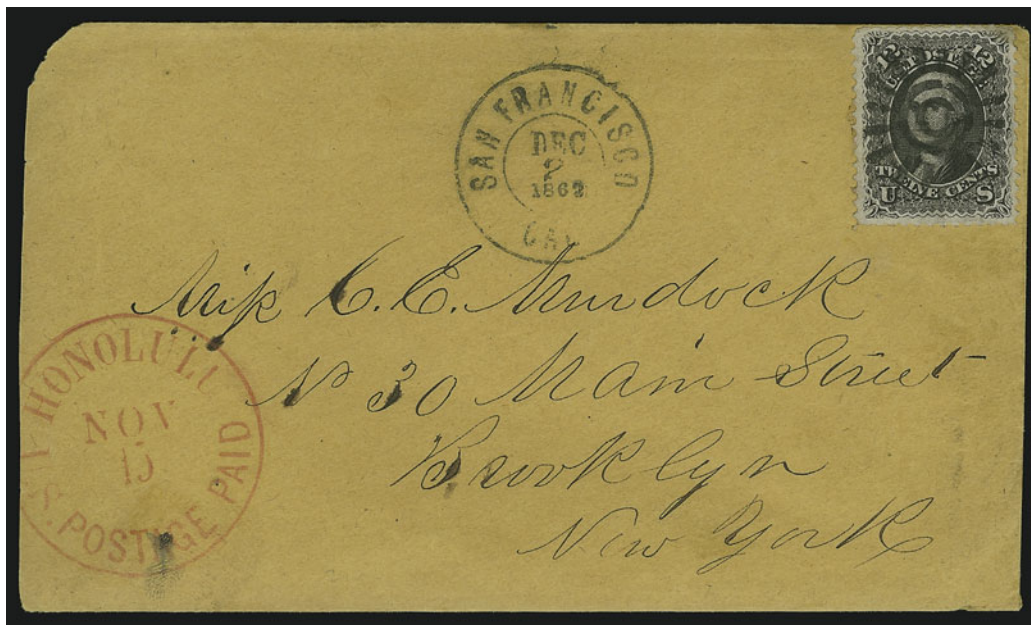 SAN FRANCISCO
DEC
2
1862
CAL
12 12
TWELVE CENTS
U S
Miss C. E. Murdock
No 30 Main Street
Brooklyn
New York
HONOLULU
NOV
15
S. POSTAGE PAID